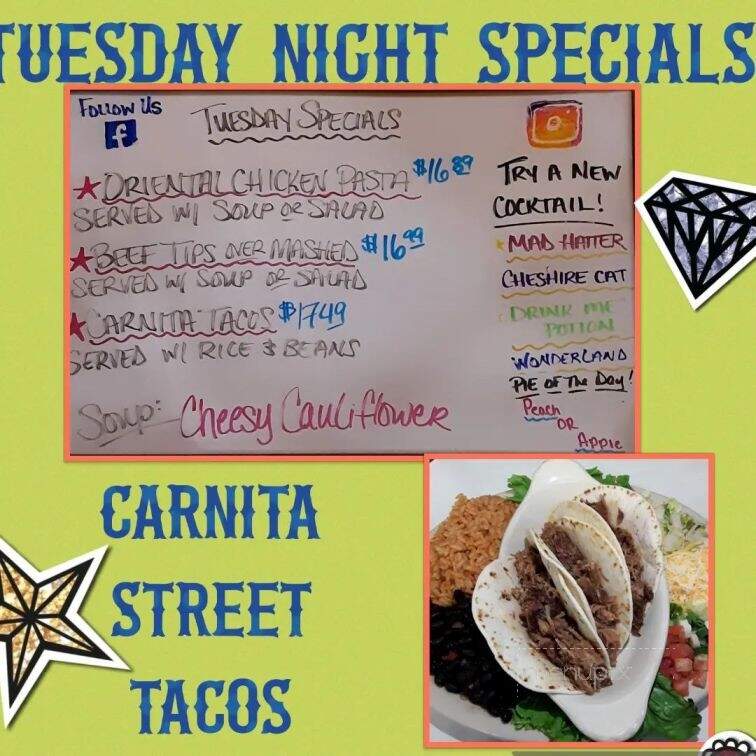 TUESDAY NIGHT SPECIALS
FOLLOW US
f
TUESDAY SPECIALS
ORIENTAL CHICKEN PASTA $16.89
SERVED W/ SOUP OR SALAD
BEEF TIPS OVER MASHED $16.99
SERVED W/ SOUP OR SALAD
CARNITA TACOS $17.49
SERVED W/ RICE & BEANS
Soup: Cheesy Cauliflower
TRY A NEW
COCKTAIL!
MAD HATTER
CHESHIRE CAT
DRINK ME
POTION
WONDERLAND
PIE OF THE DAY!
Peach
OR
Apple
CARNITA
STREET
TACOS